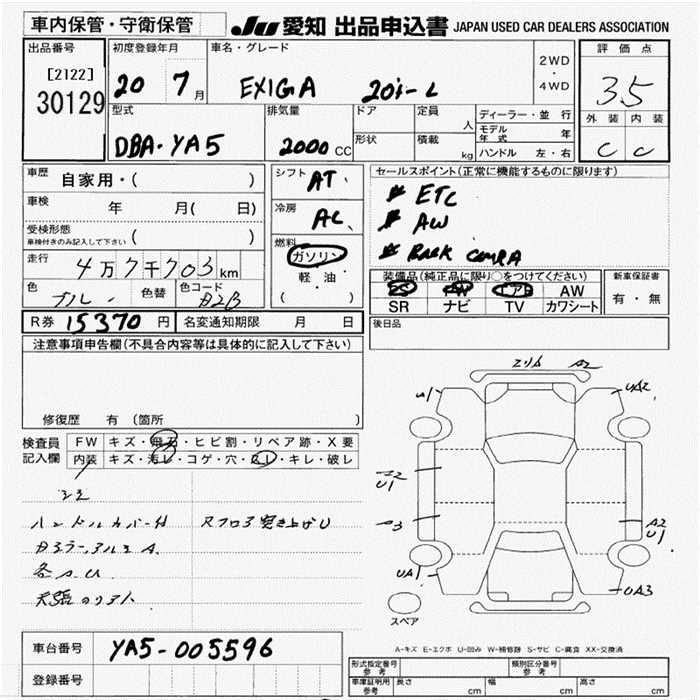 車内保管・守衛保管
JU 愛知 出品申込書 JAPAN USED CAR DEALERS ASSOCIATION
出品番号
[2122]
30129
初度登録年月
20 7 月
車名・グレード
EXIGA 20i-L
2WD
・
4WD
評価点
3.5
外装 内装
C C
型式
DBA・YA5
排気量
2000 CC
ドア
定員
人
形状
積載
kg
ディーラー・並行
モデル年式 年
ハンドル 左・右
車歴 自家用・( )
車検 年 月( 日)
受検形態
車検付きのみ記入して下さい ( )
走行 4万7千703 km
色 ブルー 色替 色コード
R券 15370 円 名変通知期限 月 日
シフト AT
冷房 AC
燃料
ガソリン
軽・油
( )
セールスポイント(正常に機能するものに限ります)
ETC
AW
BACK
装備品(純正品に限り○をつけてください)
PS PW エアB AW
SR ナビ TV カワシート
新車保証書
有・無
後日品
注意事項申告欄(不具合内容等は具体的に記入して下さい)
修復歴 有(箇所 )
検査員記入欄
FW キズ・飛石・ヒビ割・リペア跡・X要
内装 キズ・汚レ・コゲ・穴・スレ・キレ・破レ
ハンドルカバー付
各A.U
A2
U1
UA2
U1
A2
U1
UA1
UA3
スペア
A-キズ E-エクボ U-凹み W-補修跡 S-サビ C-腐食 XX-交換済
車台番号 YA5-005596
登録番号
形式指定番号 参考
類別区分番号 参考
車庫証明用 参考 長さ cm 幅 cm 高さ cm